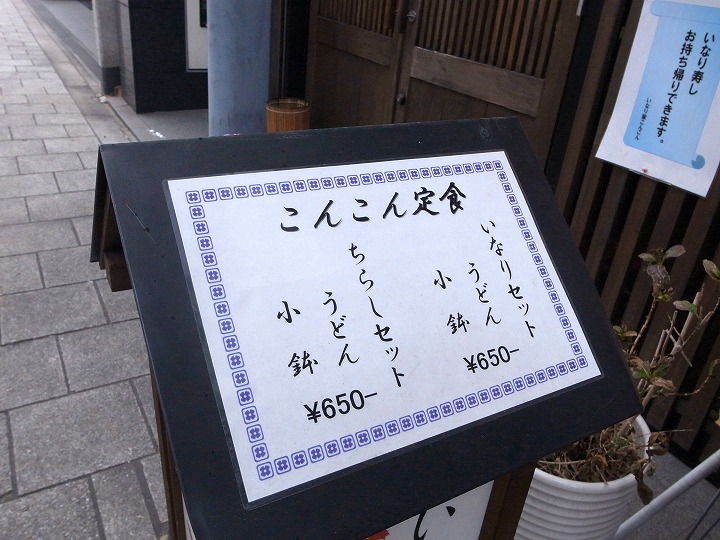 こんこん定食
いなりセット
うどん
小鉢
¥650-
ちらしセット
うどん
小鉢
¥650-
いなり寿し
お持ち帰りできます。
い